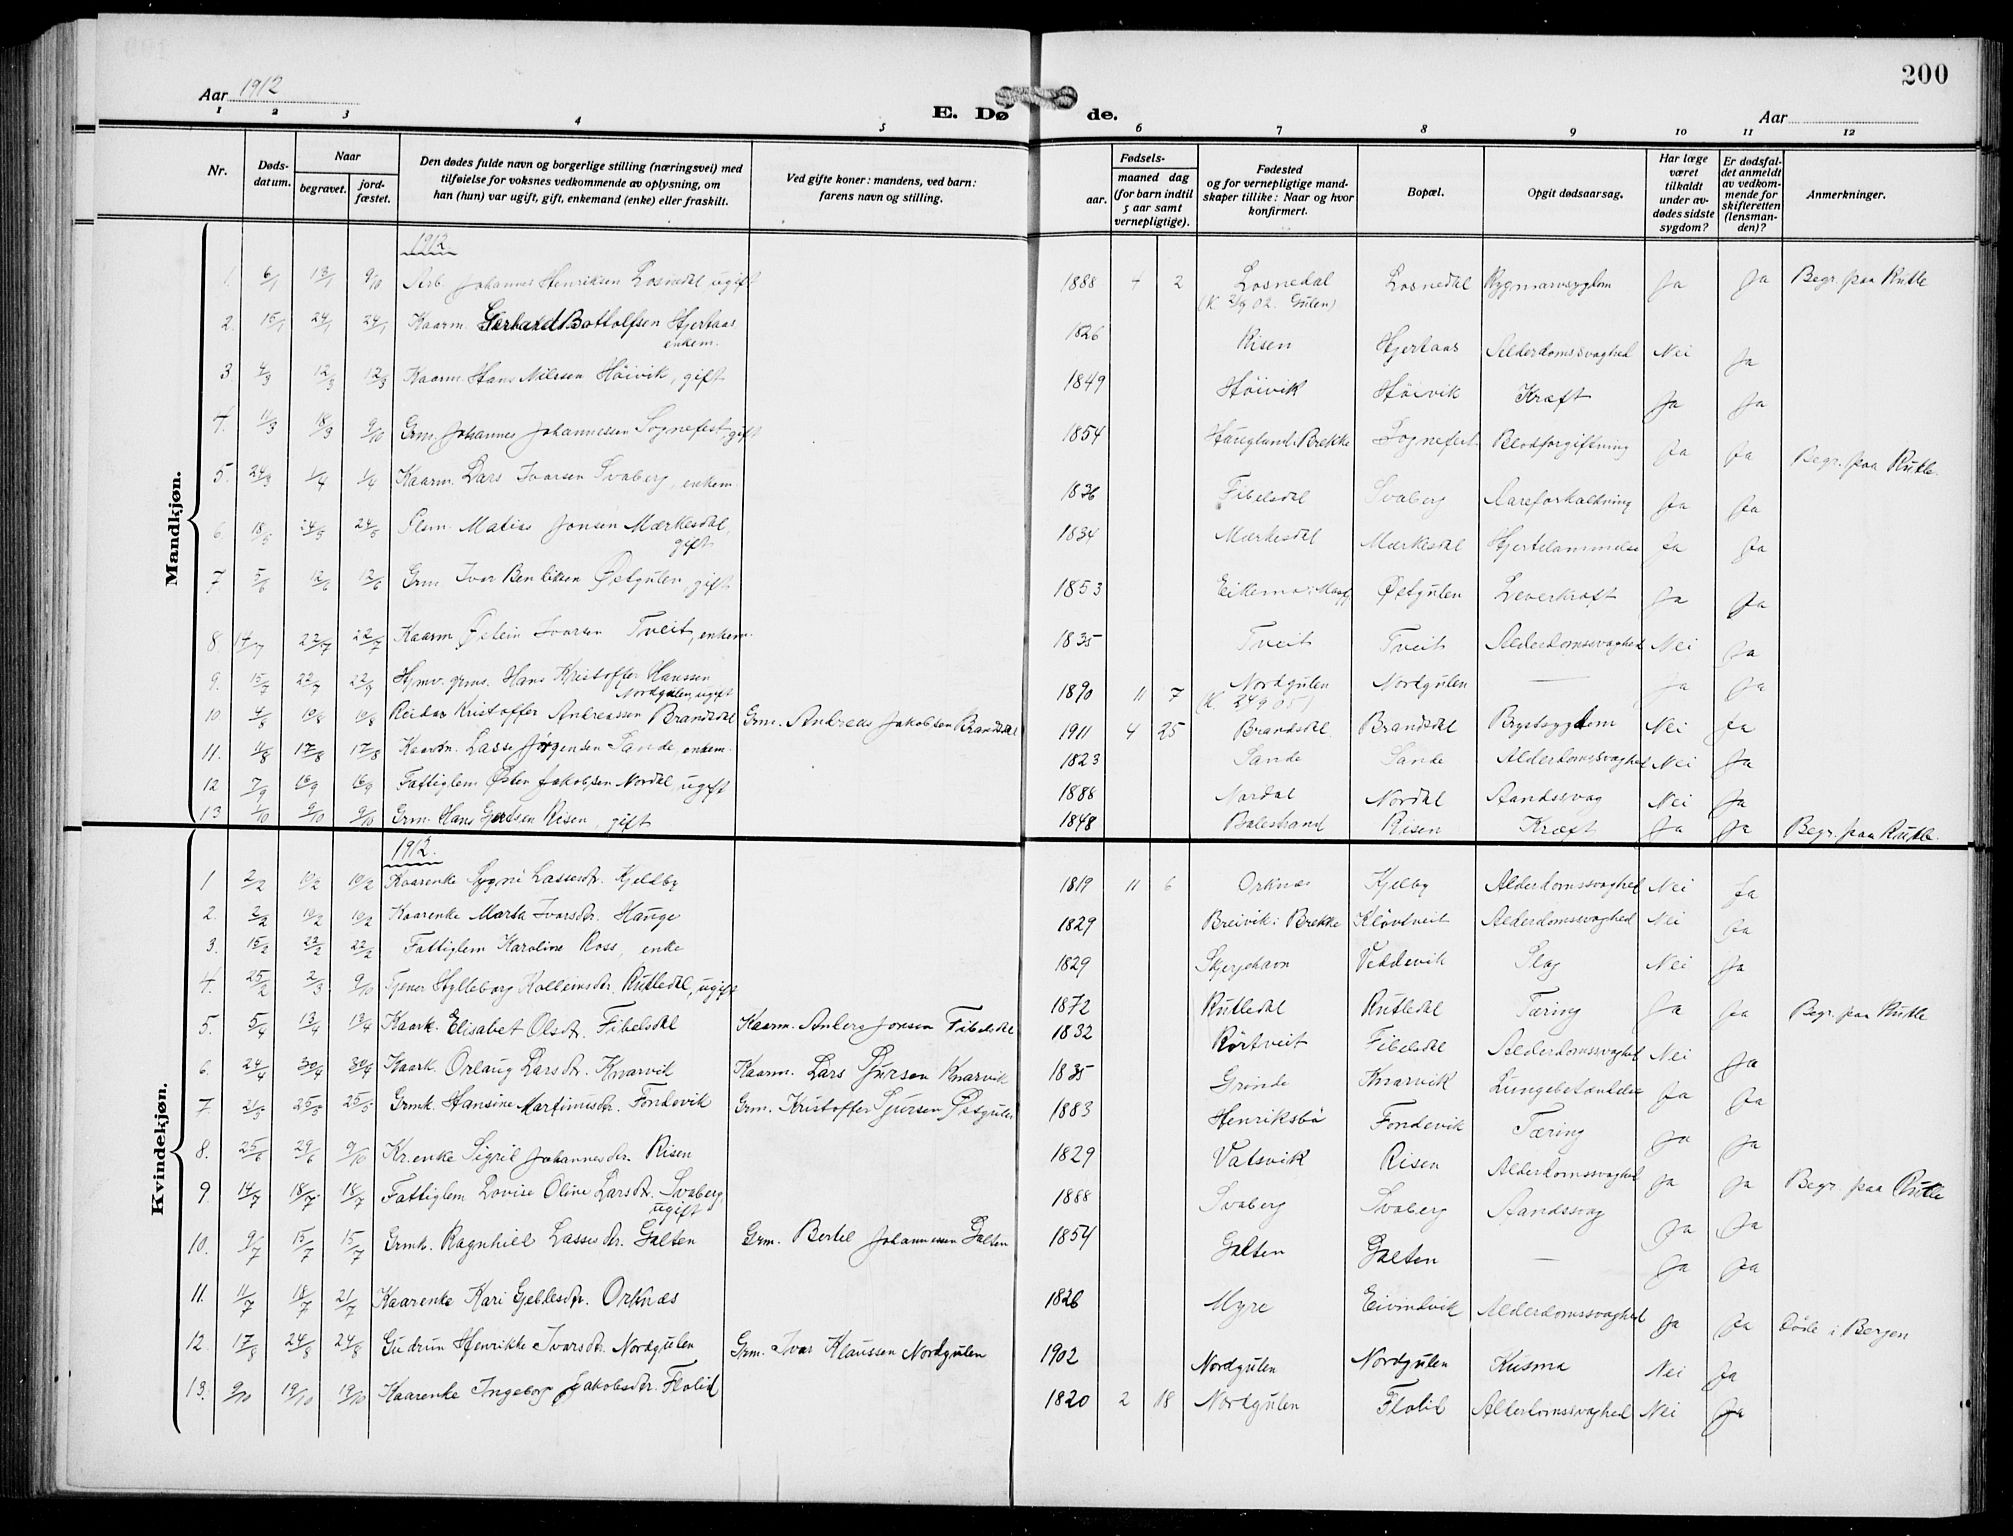 200
Aar 1912
E. Døde.
Aar
1 2 3 4 5 6 7 8 9 10 11 12
Nr.
Døds-datum.
Naar
begravet.
jord-fæstet.
Den dødes fulde navn og borgerlige stilling (næringsvei) med tilføielse for voksnes vedkommende av oplysning, om han (hun) var ugift, gift, enkemand (enke) eller fraskilt.
Ved gifte koner: mandens, ved barn: farens navn og stilling.
Fødsels-
aar.
maaned dag
(for barn indtil 5 aar samt vernepligtige).
Fødested og for vernepligtige mandskaper tillike: Naar og hvor konfirmert.
Bopæl.
Opgit dødsaarsag.
Har læge været tilkaldt under avdødes sidste sygdom?
Er dødsfaldet anmeldt av vedkommende for skifteretten (lensmanden)?
Anmerkninger.
Mandkjøn.
1912.
1. 6/1 13/1 9/10 Arb. Johannes Henriksen Losnedal ugift 1888 4 2 Losnedal (K. 2/9 02. Gulen) Losnedal Rygmarvsygdom Ja Ja Begr. paa Rutle
2. 15/1 24/1 24/1 Kaarm. Gerhard Bottolfsen Hjertaas enkem. 1826 Risen Hjertaas Alderdomssvaghed Nei Ja
3 4/3 12/3 12/3 Kaarm. Hans Nilssen Høivik, gift 1849 Høivik Høivik Kræft Ja Ja
4. 11/3 18/3 9/10 Grm. Johannes Johannessen Sognefest gift 1854 Haugland i Brekke Sognefest Blodforgiftning Ja Ja Begr. paa Rutle
5. 24/3 1/4 1/4 Kaarm. Lars Ivarsen Svaberg, enkem 1836 Fibelsdal Svaberg Aareforkalkning Ja Ja
6 18/5 24/5 24/5 Plsm. Matias Jonsen Mærkesdal, gift 1834 Mærkesdal Mærkesdal Hjertelammelse Ja Ja
7 5/6 12/6 12/6 Grm Ivar Bendiksen Østgulen, gift 1853 Eikemo i Masf. Østgulen Leverkræft Ja Ja
8. 14/7 22/7 22/7 Kaarm Østein Ivarsen Tveit, enkem. 1835 Tveit Tveit Alderdomssvaghed Nei Ja
9. 15/7 22/7 22/7 Hjmv. grms. Hans Kristoffer Hanssen Nordgulen, ugift 1890 11 7 Nordgulen (K. 24 9 05) Nordgulen — Ja Ja
10. 4/8 10/8 10/8 Reidar Kristoffer Andreassen Brandsdal Grm. Andreas Jakobsen Brandsdal 1911 4 25 Brandsdal Brandsdal Brystsygdom Nei Ja
11. 4/8 17/8 17/8 Kaarm. Lasse Jørgensen Sande, enkem. 1823 Sande Sande Alderdomssvaghed Nei Ja
12 7/9 16/9 16/9 Fattiglem Østen Jakobsen Nordal, ugift 1888 Nordal Nordal Aandssvag Nei Ja
13 1/10 9/10 9/10 Grm. Hans Gjertsen Risen, gift 1848 Balestrand Risen Kræft Ja Ja Begr. paa Rutle.
Kvindekjøn.
1912.
1 2/2 10/2 10/2 Kaarenke Sygni Lassesdr. Kjeldby 1819 11 6 Orknæs Kjelby Alderdomssvaghed Nei Ja
2. 2/2 10/2 10/2 Kaarenke Marta Ivarsdr. Hauge 1829 Breivik i Brekke Kløvtveit Alderdomssvaghed Nei Ja
3. 15/2 22/2 22/2 Fattiglem Karoline Ross, enke 1829 Skjerjehavn Veddevik Slag Nei Ja
4. 25/2 2/3 9/10 Tjener Hylleborg Kolleinsdr. Rutledal, ugift 1872 Rutledal Rutledal Tæring Ja Ja Begr. paa Rutle
5. 5/4 13/4 13/4 Kaark. Elisabet Olsdr. Fibelsdal Kaarm. Anders Jonsen Fibelsdal 1832 Rørtveit Fibelsdal Alderdomssvaghed Nei Ja
6. 24/4 30/4 30/4 Kaark. Orlaug Larsdr. Knarvik Kaarm. Lars Sjursen Knarvik 1835 Grinde Knarvik Lungebetændelse Ja Ja
7. 21/5 25/5 25/5 Grmk. Hansine Martinusdr. Fondevik Grm. Kristoffer Sjursen Østgulen 1883 Henriksbø Fondevik Tæring Ja Ja
8. 25/6 29/6 9/10 Kr.enke Sigrid Johannesdr. Risen 1829 Vatsvik Risen Alderdomssvaghed Ja Ja Begr. paa Rutle
9. 14/7 18/7 18/7 Fattiglem Lovise Oline Larsdr. Svaberg ugift 1888 Svaberg Svaberg Aandssvag Ja Ja
10. 9/7 15/7 15/7 Grmk. Ragnhild Lassesdr. Galten Grm. Bertel Johannessen Galten 1854 Galten Galten — Ja Ja
11. 11/7 18/7 21/7 Kaarenke Kari Gjeldesdr. Orknæs 1826 Myre Eivindvik Alderdomssvaghed Ja Ja Døde i Bergen
12. 17/8 24/8 24/8 Gudrun Henrikke Ivarsdr. Nordgulen Grm. Ivar Klaussen Nordgulen 1902 Nordgulen Nordgulen Kusma Nei Ja
13. 9/10 19/10 19/10 Kaarenke Ingeborg Jakobsdr. Flolid 1820 2 18 Nordgulen Flolid Alderdomssvaghed Nei Ja